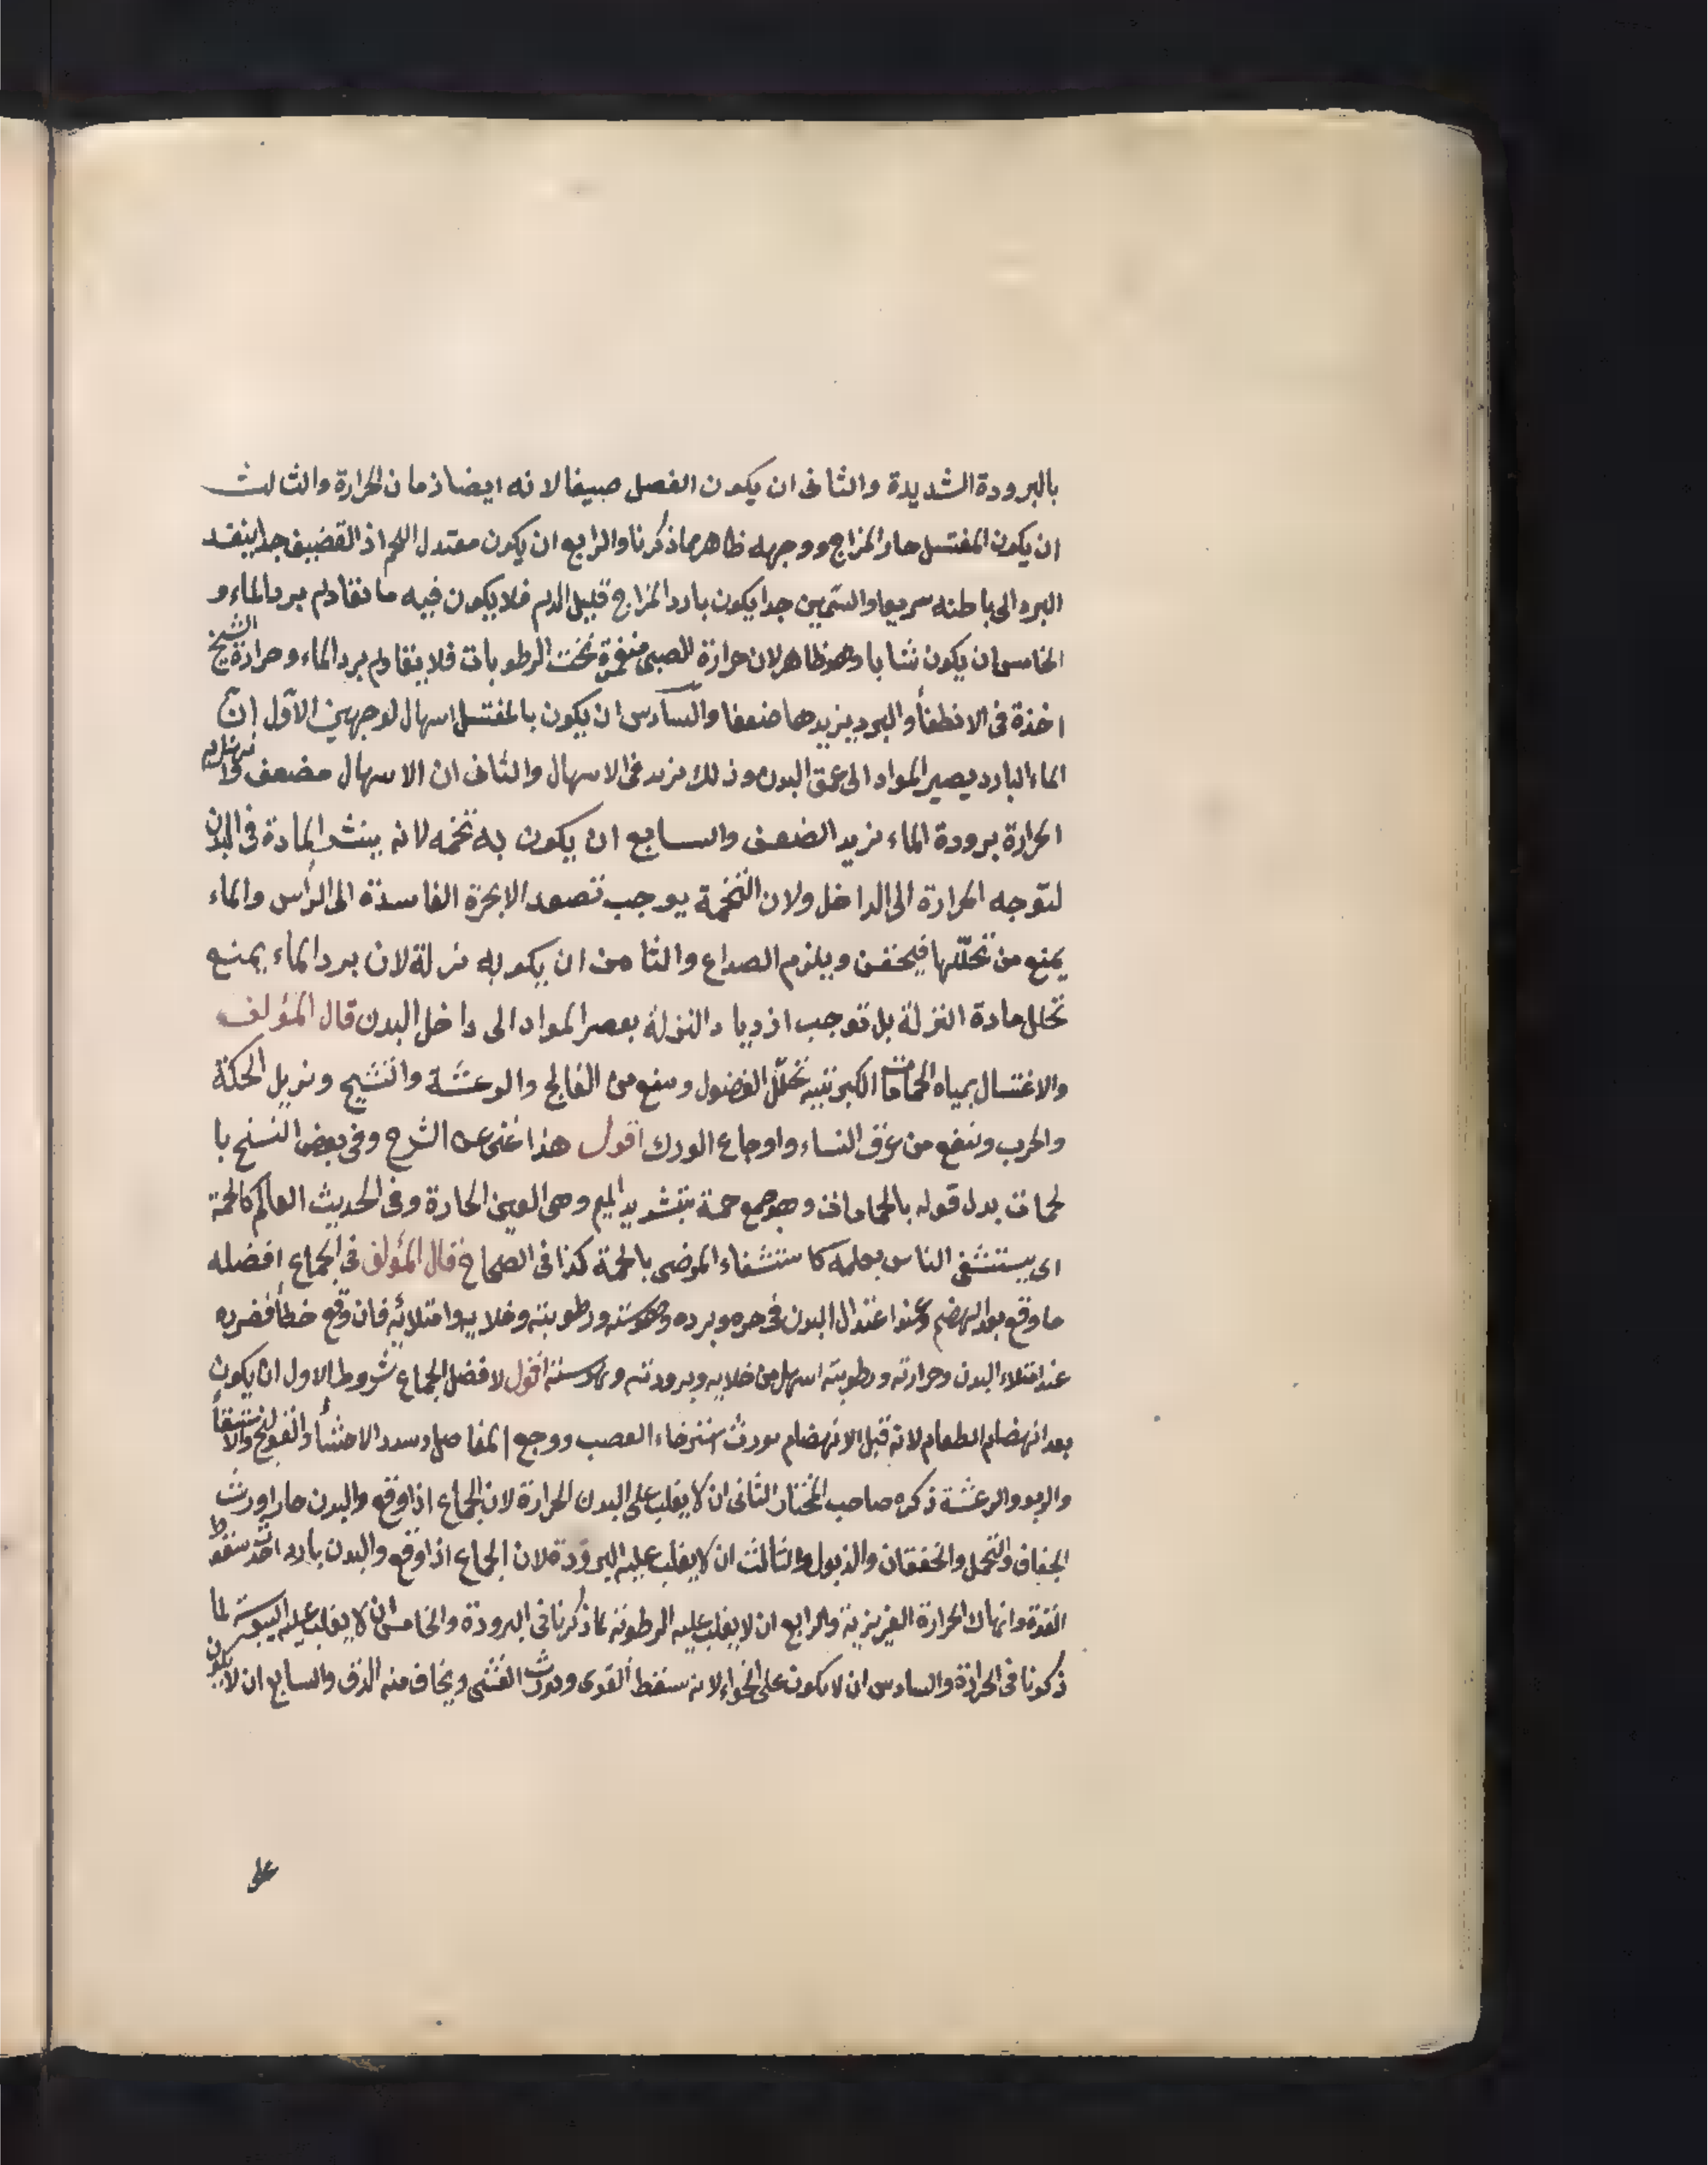 بالبرودة الشديدة والثانى ان يكون الفصل صيفا لانه ايضا زمان الحرارة والثالث
ان يكون المغتسل حار المزاج ووجهه ظاهر مما ذكرنا والرابع ان يكون معتدل اللحم اذ القضيف جدا ينفد
البرد الى باطنه سريعا والسّمين جدا يكون بارد المزاج قليل الدم فلا يكون فيه ما تقادم برد الماء و
الخامس ان يكون شابا وهو ظاهر لان حرارة الصبى منغمرة تحت الرطوبات فلا يقادم برد الماء وحرارة الشيخ
اخذة فى الانطفأ والبرد يزيدها ضعفا والسّادس ان يكون بالمغتسل اسهال لوجهين الاوّل انّ
الماء البارد يصير المواد الى عمق البدن وذلك يزيد فى الاسهال والثانى ان الاسهال مضعف
الحرارة برودة الماء يزيد الضعف والسابع ان يكون به تخمه لانه ينشر المادة فى البدن
لتوجه الحرارة الى الداخل ولان التخمة يوجب تصعد الابخرة الفاسدة الى الرأس والماء
يمنع من تحلّلها فيحقن ويلزم الصداع والثامن ان يكو به نزلة لان برد الماء يمنع
تحلل مادة النزلة بل توجب ازدياد النزلة بعصر المواد الى داخل البدن قال المؤلف
والاغتسال بمياه الحمامات الكبريتيه تحلّل الفضول وينفع من الفالج والرعشة والتشنج ويزيل الحكة
والجرب وينفع من عرق النساء واوجاع الورك اقول هذا غنى عن الشرح وفى بعض النسخ با
لحمات بدل قوله بالحمامات وهو جمع حمة بتشديد الميم وهى العين الحارة وفى الحديث العالم كالحمة
اى يستشفى الناس بعلمه كاستشفاء المرضى بالحمة كذا فى الصحاح قال المؤلف فى الجماع افضله
ما وقع بعد الهضم وعند اعتدال البدن فى حره وبرده ويبوسته ورطوبته وخلايه وامتلائه فان وقع خطأ فضرره
عند امتلاء البدن وحرارته ورطوبته اسهل من خلايه وبرودته ويبوسته اقول لافضل الجماع شروط الاول ان يكون
بعد انهضام الطعام لانه قبل الانهضام يورث استرخاء العصب ووجع المفاصل وسدد الاحشأ والقولنج والاستسقأ
والربو والرعشة ذكره صاحب المختار الثانى ان لا يغلب على البدن الحرارة لان الجماع اذا وقع والبدن حار اورث
الجفاف والنحل والخفقان والذبول والثالث ان لا يغلب عليه البرودة لان الجماع اذا وقع والبدن بارد احدث سقوط
القدة وانهاك الحرارة الغريزية والرابع ان لا يغلب عليه الرطوبة لما ذكرنا فى البرودة والخامس ان لا يغلب عليه اليبوسة لما
ذكرنا فى الحرارة والسادس ان لا يكون على الخواء لانه يسقط القوى ويورث الغشى ويخاف منه الدق والسابع ان لا يكون
على